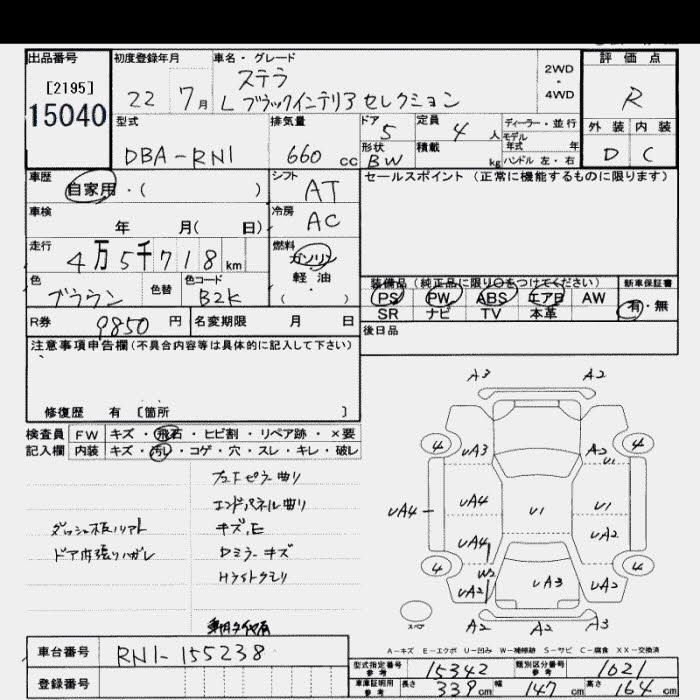 出品番号
[2195]
15040
初度登録年月
22 7月
車名・グレード
ステラ
L ブラックインテリアセレクション
2WD
・
4WD
評価点
R
外装 内装
D C
型式
DBA-RN1
排気量
660 cc
ドア 5
定員 4 人
形状 BW
積載 kg
ディーラー・並行
モデル
年式 年
ハンドル 左・右
車歴
自家用・( )
シフト
AT
セールスポイント (正常に機能するものに限ります)
車検
年 月( 日)
冷房
AC
走行
4万5千718km
燃料
ガソリン
軽・油
( )
色
ブラウン
色替
色コード
B2K
装備品 (純正品に限り○をつけてください)
新車保証書
PS PW ABS エアB AW
SR ナビ TV 本革
有・無
R券 9850 円
名変期限 月 日
後日品
注意事項申告欄(不具合内容等は具体的に記入して下さい)
修復歴 有 〔箇所 〕
検査員
記入欄
FW キズ・飛石・ヒビ割・リペア跡・×要
内装 キズ・汚レ・コゲ・穴・スレ・キレ・破レ
エンドパネル曲り
ドア内張りハガレ
Dミラーキズ
A3 A2
4 4
UA3 A2 U1
UA4 UA4 U1 U1
UA4 UA2
4 4
W2
UA2 UA3 UA2
A2 A2 A3
スペア
A-キズ E-エクボ U-凹み W-補修跡 S-サビ C-腐食 XX-交換済
車台番号
RN1-155238
登録番号
型式指定番号
参考
15342
類別区分番号
参考
1021
車庫証明用
参考
長さ 339cm
幅 147cm
高さ 164cm